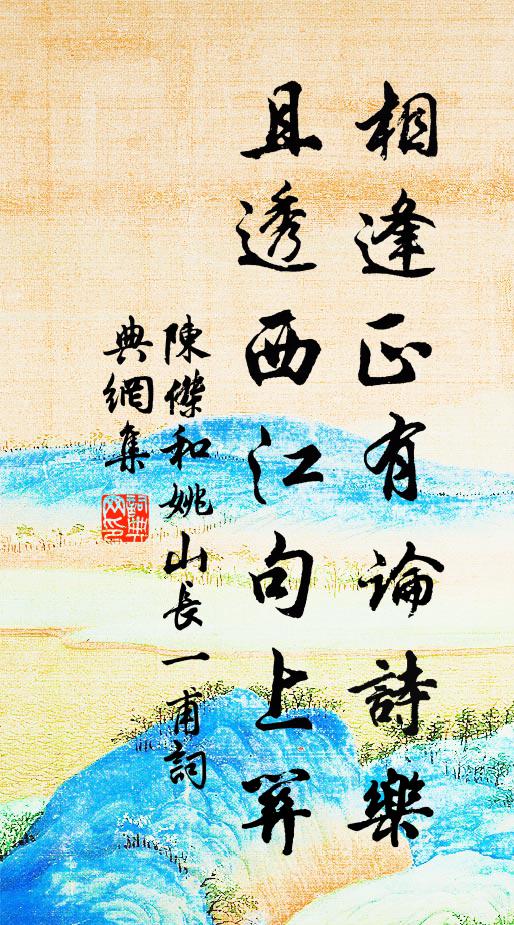 相逢正有論詩樂
且透西江句上關
陳傑和姚山長一甫詞
典網集
詞典
网印